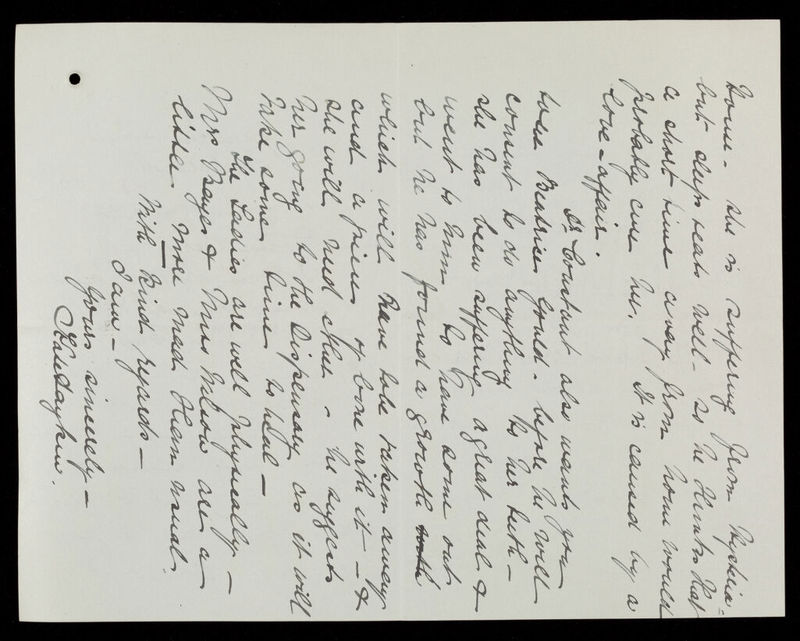 Home - she is suffering from Hysteria -
but sleeps & eats well - so he thinks that
a short time away from home would
probably cure her. It is caused by a
love-affair.
Dr Constant also wants you
to see Beatrice Gould - before he will
consent to do anything to her teeth -
she has been suffering a great deal &
went to him to have some out
but he has found a growth
which will have to be taken away
and a piece of bone with it - &
she will need ether - he suggests
her going to the Dispensary as it will
take some time to heal -
The Ladies are well physically -
Mrs & Miss are a
little more mad than usual.
With kind regards -
I am -
Yours sincerely -